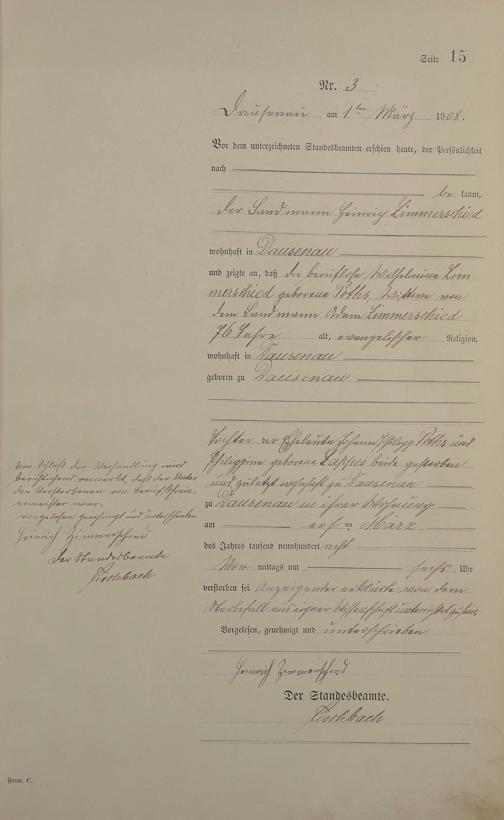 Seite 15
Nr. 3
Dausenau am 1ten März 1908.
Vor dem unterzeichneten Standesbeamten erschien heute, der Persönlichkeit
nach
be kannt,
der Landmann Heinrich Zimmerschied
wohnhaft in Dausenau
und zeigte an, daß die berufslose Wilhelmine Zim-
merschied geborene Poths, Wittwe von
dem Landmann Adam Zimmerschied
76 Jahre alt, evangelischer Religion,
wohnhaft in Dausenau
geboren zu Dausenau
Tochter der Eheleute Johann Philipp Poths und
Philippine geborene beide gestorben
und zuletzt wohnhaft zu Dausenau
zu Dausenau in ihrer Wohnung
am ersten März
des Jahres tausend neunhundert acht
Vor mittags um sechs Uhr
verstorben sei. Anzeigender erklärte von dem
Sterbefall aus eigner Wissenschaft unterrichtet zu sein.
Vorgelesen, genehmigt und unterschrieben
Heinrich Zimmerschied
Der Standesbeamte.
Fischbach
Vor Schluß der Verhandlung wird
berichtigend vermerkt, daß der
der Verstorbenen von Beruf
war.
vorgelesen genehmigt und unterschrieben
Heinrich Zimmerschied
Der Standesbeamte
Fischbach
Form. C.